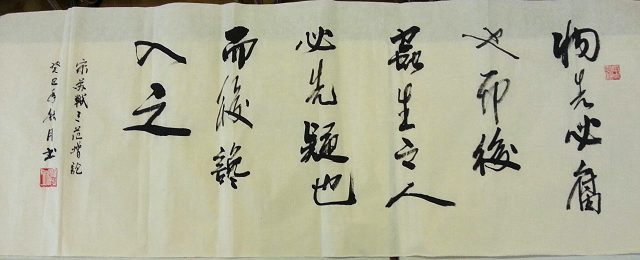 物先必腐
也而後
蟲生之人
必先疑也
而後讒
入之
宋蘇軾之范增論
癸巳年秋月书